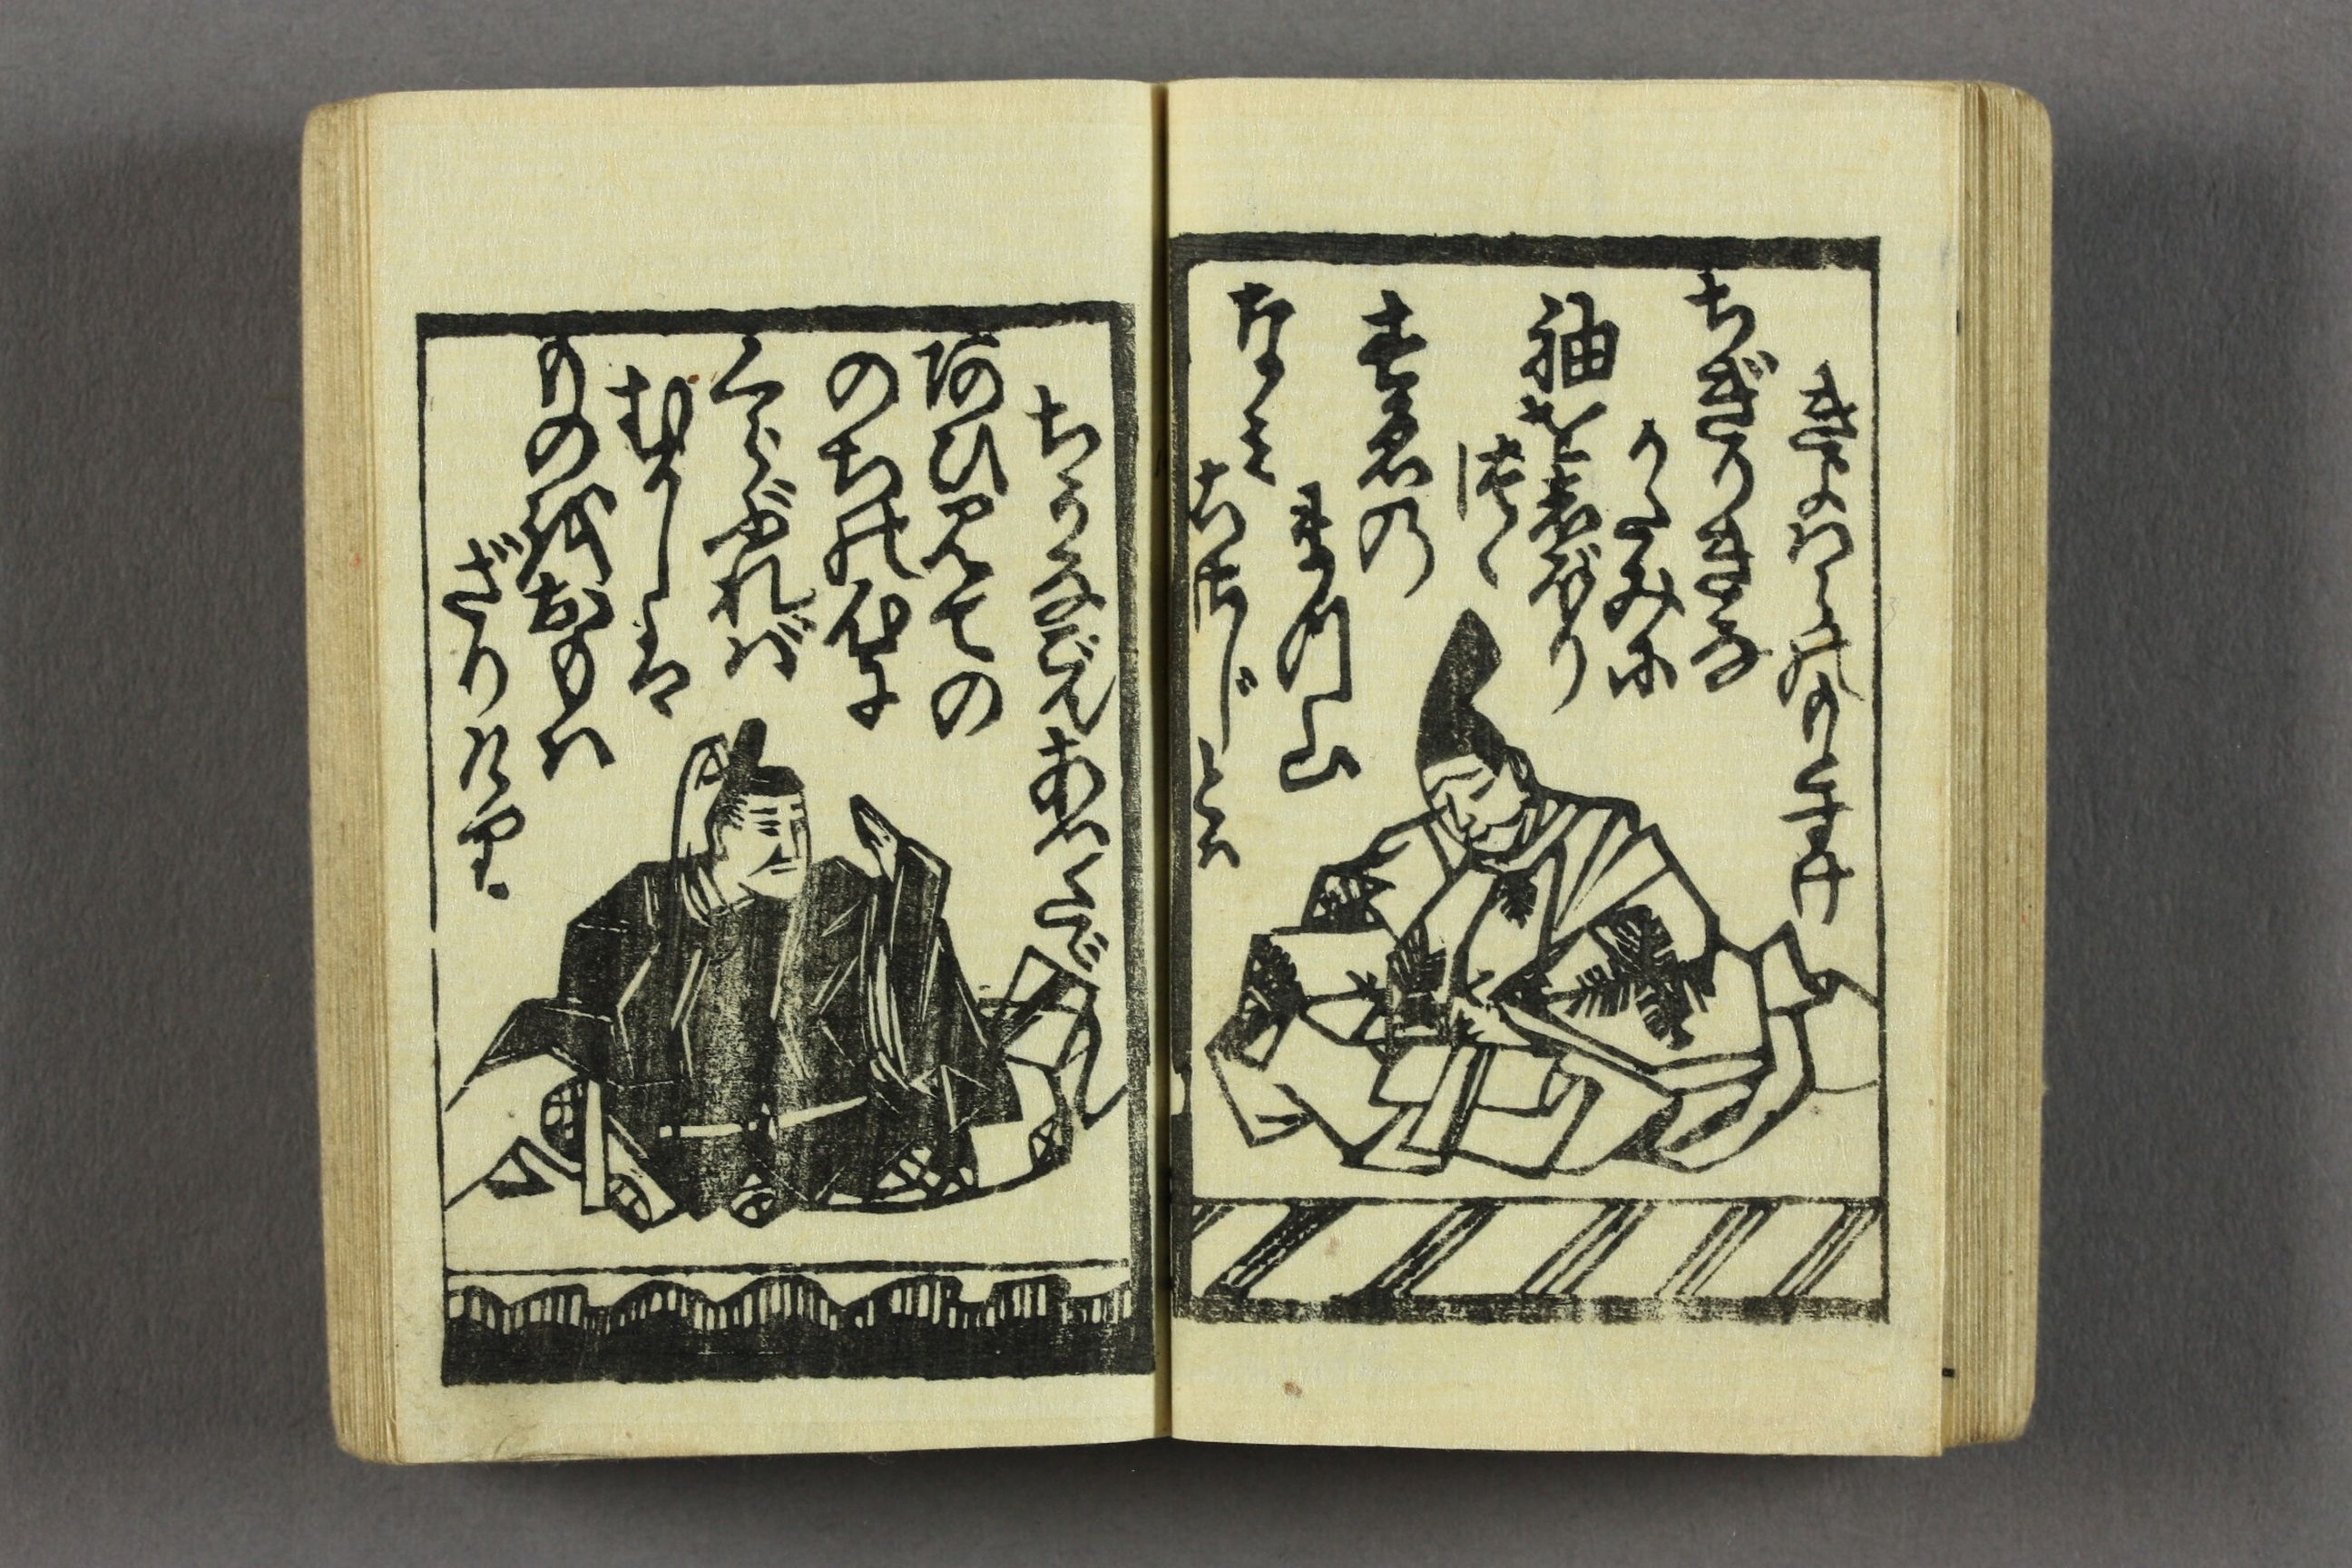 きよハらのもとすけ
ちぎりきな
かたみに
袖をしぼり
つゝ
すゑの
まつ山
なみ
こさじとハ
ちうなごんあつたゞ
あひみての
のちの心に
くらぶれバ
むかしは
ものをおもハ
ざりけり